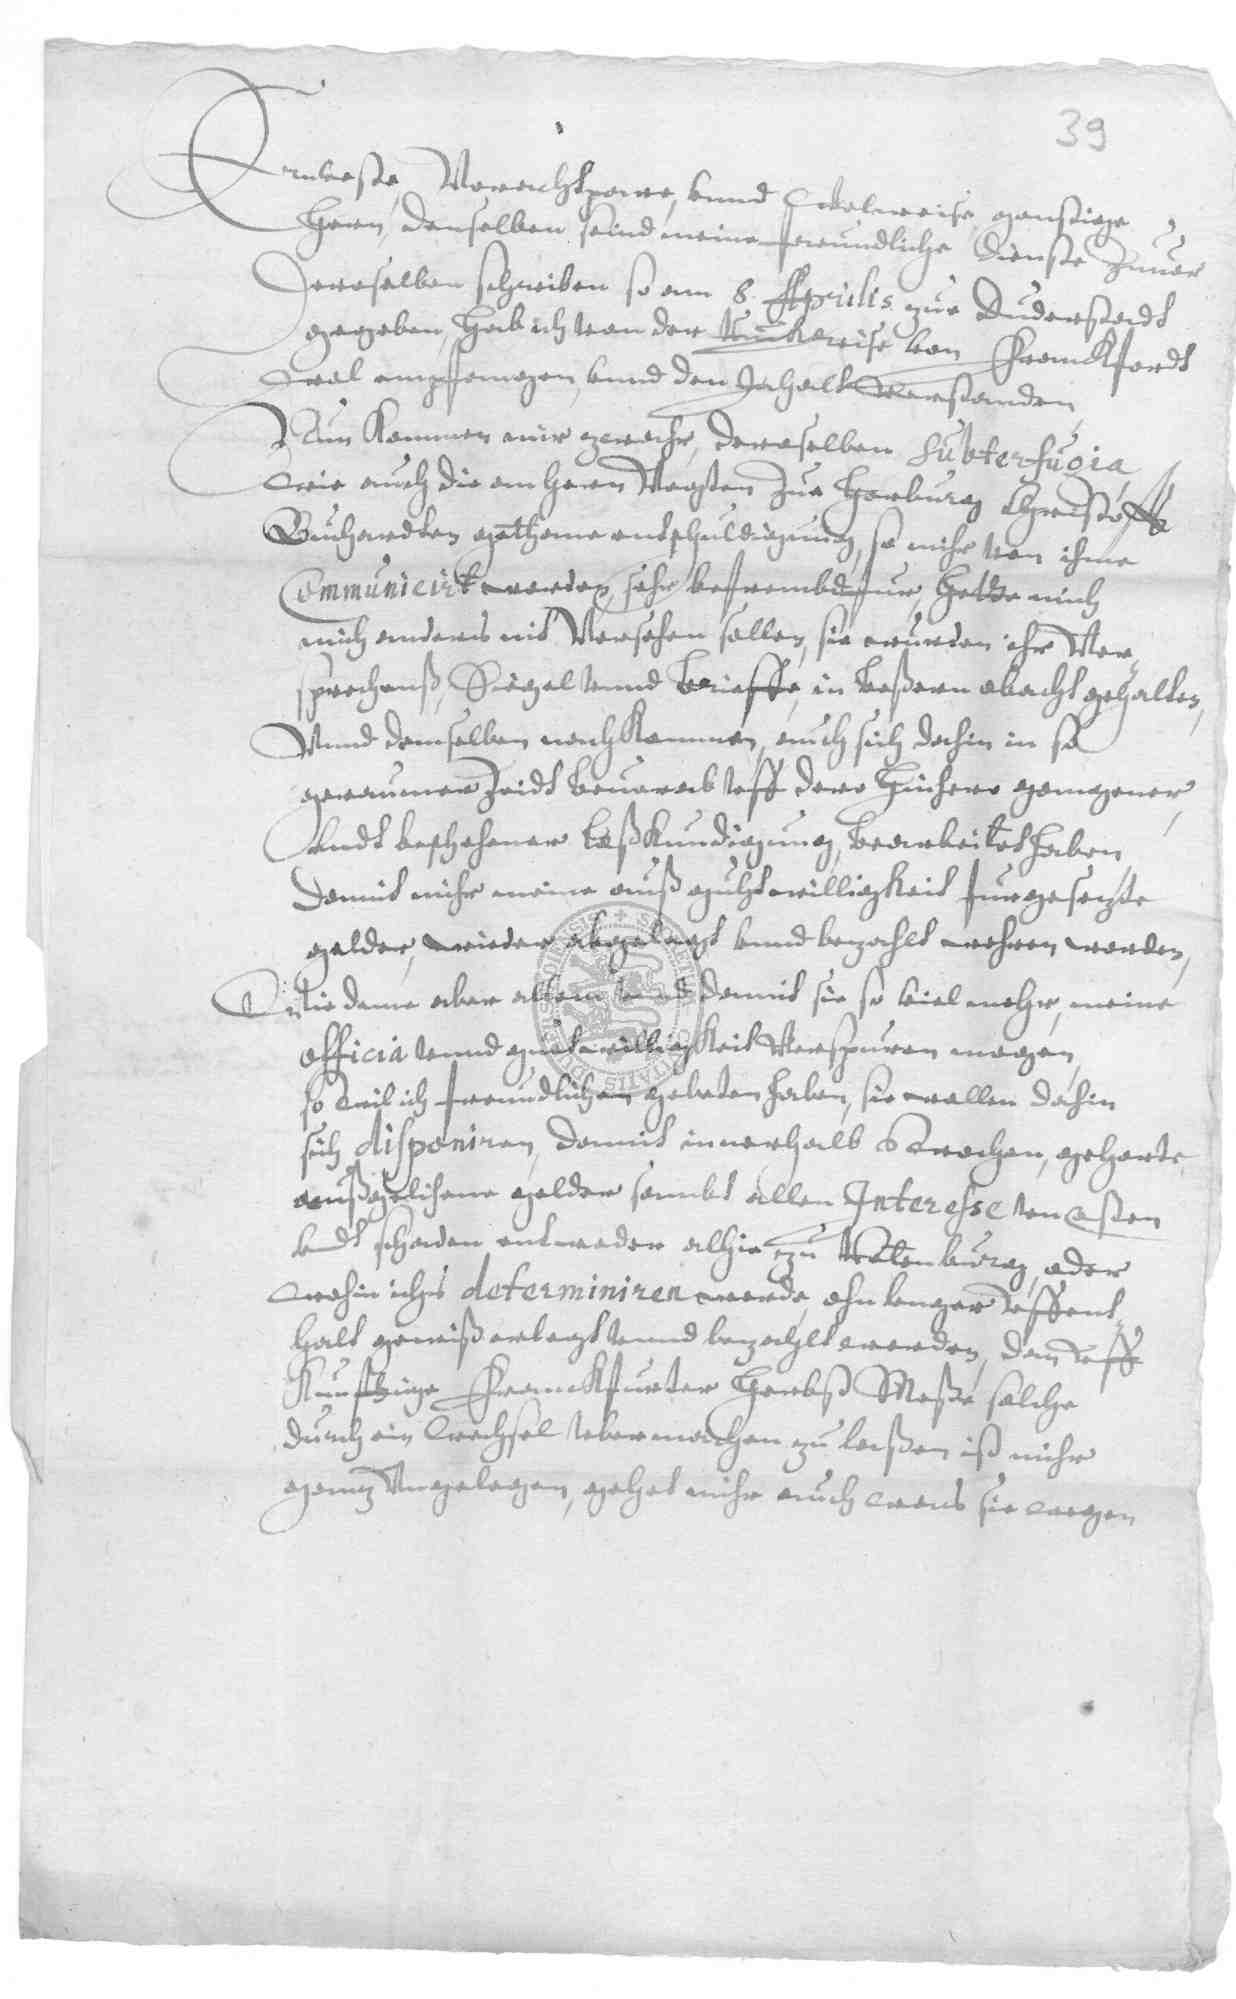 39
Ernveste, Vorachtpare, vnnd wolweise, gonstige
Hern, denselben seind meine freundliche dienste zuuor
Deroselben schreiben so am 8. Aprilis zue Duderstadt
gegeben, hab ich von der Ruckreise von Franckfordt
wol empfangen, vnnd den Inhalt verstanden,
Nun kommen mir zwahr, deroselben subterfugia,
wie auch die am hern Vogten zue Harburg Christoff
Buchardten gethane entschuldigung, so mihr von ihme
Communicirt worden, sehr befrembdt fur, hette mich
mich anders nit versehen sollen, sie wurden ihr Ver-
sprechenß, Siegel vnnd brieffe, in beßern obacht gehalten,
Vnnd demselben nachkommen, auch sich dahin in so
geraumer Zeidt beuorab vff dero hiehero gangener,
vndt beschehener loßkundigung, bearbeitet haben,
damit mihr meine auß guhtwilligkeit furgesetzte
gelder, wieder abgelegt vnnd bezahlt wehren worden,
Wie deme aber allem vnnd damit sie so viel mehr, meine
officia vnnd gutwilligkeit verspuren mogen,
so wil ich freundlichen gebeten haben, sie wollen dahin
sich disponiren, damit innerhalb 6 wochen, gehorte
außgelihene gelder sambt allen Interesse vncosten
vndt schaden entweder alhie zu Rotenburg, oder
wohin ichs determiniren werde, ohn lenger vffent-
halt gewiß erlegt vnnd bezahlt werden, den vff
kunfftige Franckfurter Herbst Messe solche
durch ein wechsel vbermachen zu laßen ist mihr
gantz vngelegen, gehet mihr auch was sie wegen